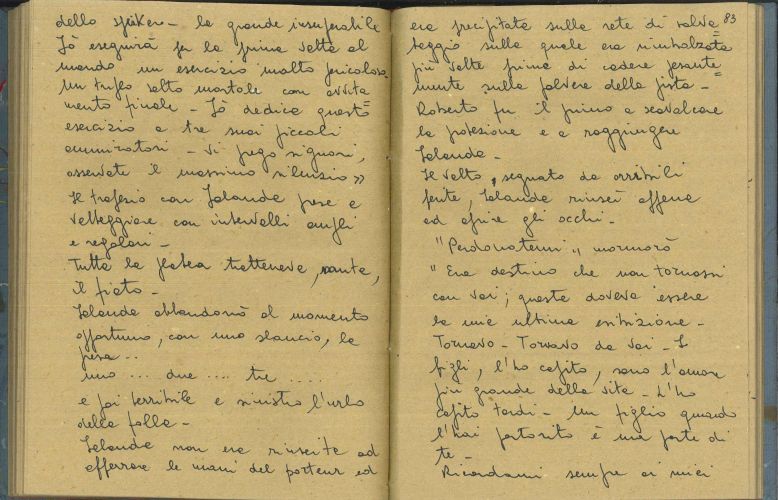 dello speaker - la grande insuperabile
Jò eseguirà per la prima volta al
mondo un esercizio molto pericoloso
un triplo salto mortale con avvita=
mento finale - Jò dedica questo
esercizio a tre suoi piccoli
ammiratori - Vi prego signori,
osservate il massimo silenzio »
Il trapesio con Jolanda prese a
volteggiare con intervalli ampli
e regolari -
Tutta la platea tratteneva, ansante,
il fiato -
Jolanda abbandonò al momento
opportuno, con uno slancio, la
presa ..
uno ... due .... tre ....
e poi terribile e sinistro l'urlo
della folla -
Jolanda non era riuscita ad
afferrare le mani del porteur ed
83
era precipitata sulla rete di salva=
taggio sulla quale era rimbalzata
più volte prima di cadere pesante=
mente sulla polvere della pista -
Roberto fu il primo a scavalcare
la protesione e a raggiungere
Jolanda -
Il volto, segnato da orribili
ferite, Jolanda riuscì appena
ad aprire gli occhi -
"Perdonatemi" mormorò
"Era destino che non tornassi
con voi; questa doveva essere
la mia ultima esibizione -
Tornavo - Tornavo da voi - I
figli, l'ho capito, sono l'amore
più grande della vita - L'ho
capito tardi - Un figlio quando
l'hai partorito è una parte di
te -
Ricordami sempre ai miei